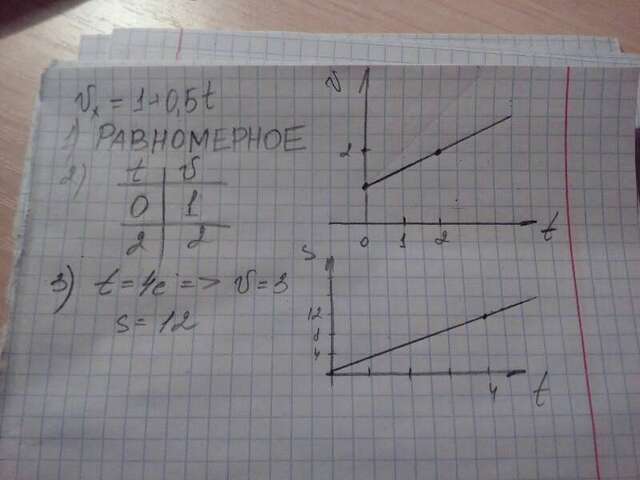 vₓ = 1+0,5t
1) РАВНОМЕРНОЕ
2) t v
0 1
2 2
3) t=4c => v=3
s= 12
v
2
0 1 2 t
s
12
8
4
4 t